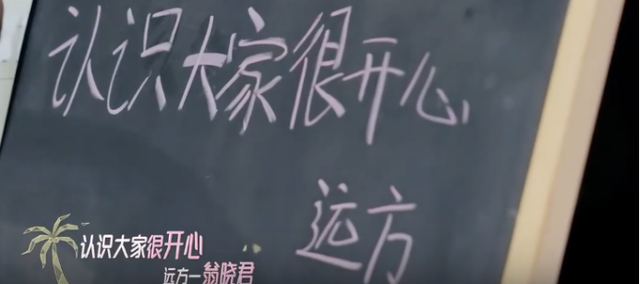 认识大家很开心
远方
认识大家很开心
远方—翁晓君